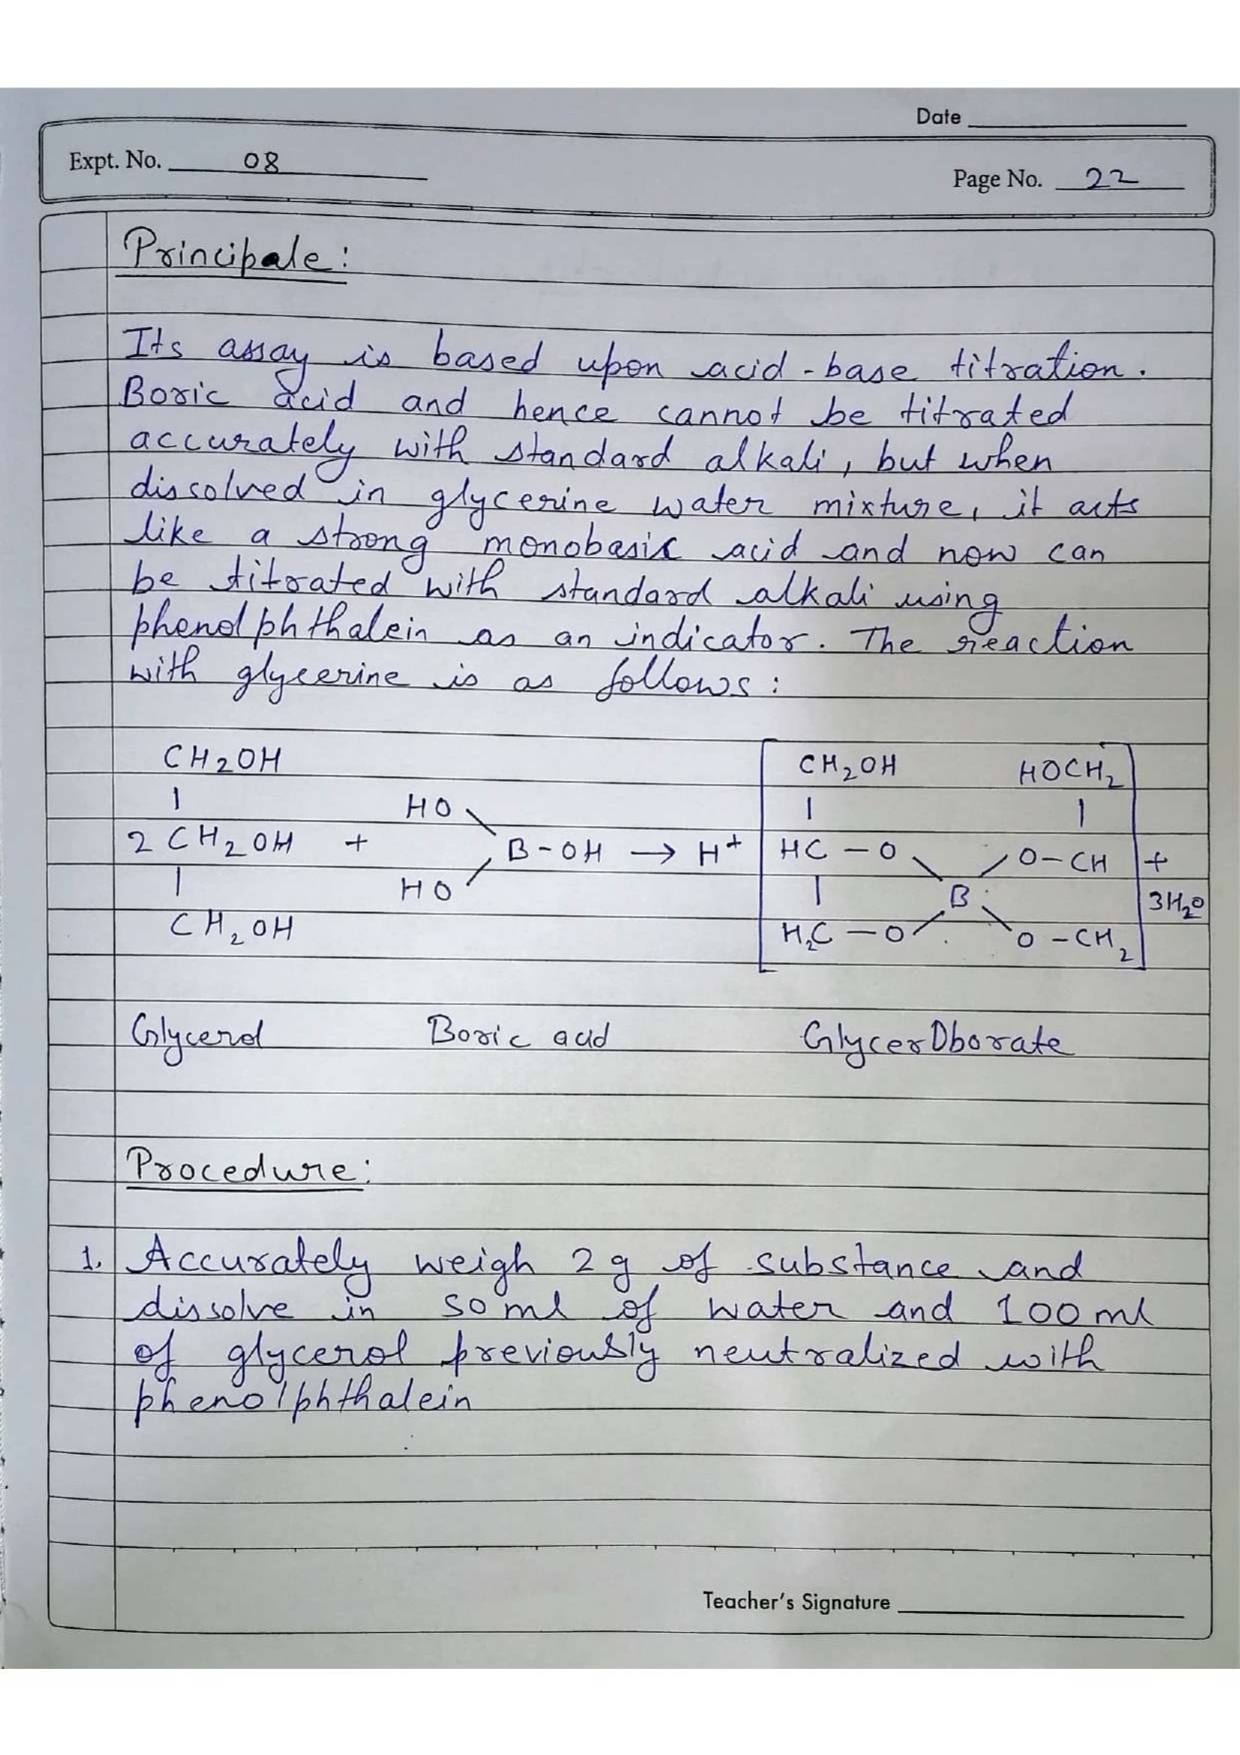 Date
Expt. No. 08
Page No. 22
Principale:
Its assay is based upon acid-base titration.
Boric acid and hence cannot be titrated
accurately with standard alkali, but when
dissolved in glycerine water mixture, it acts
like a strong monobasic acid and now can
be titrated with standard alkali using
phenolphthalein as an indicator. The reaction
with glycerine is as follows:
CH2OH CH2OH HOCH2
HO
2 CH2OH + B-OH → H+ HC-O O-CH +
HO B 3H2O
CH2OH H2C-O O-CH2
Glycerol Boric acid GlycerOborate
Procedure:
1. Accurately weigh 2g of substance and
dissolve in 50 ml of water and 100 ml
of glycerol previously neutralized with
phenolphthalein
Teacher's Signature